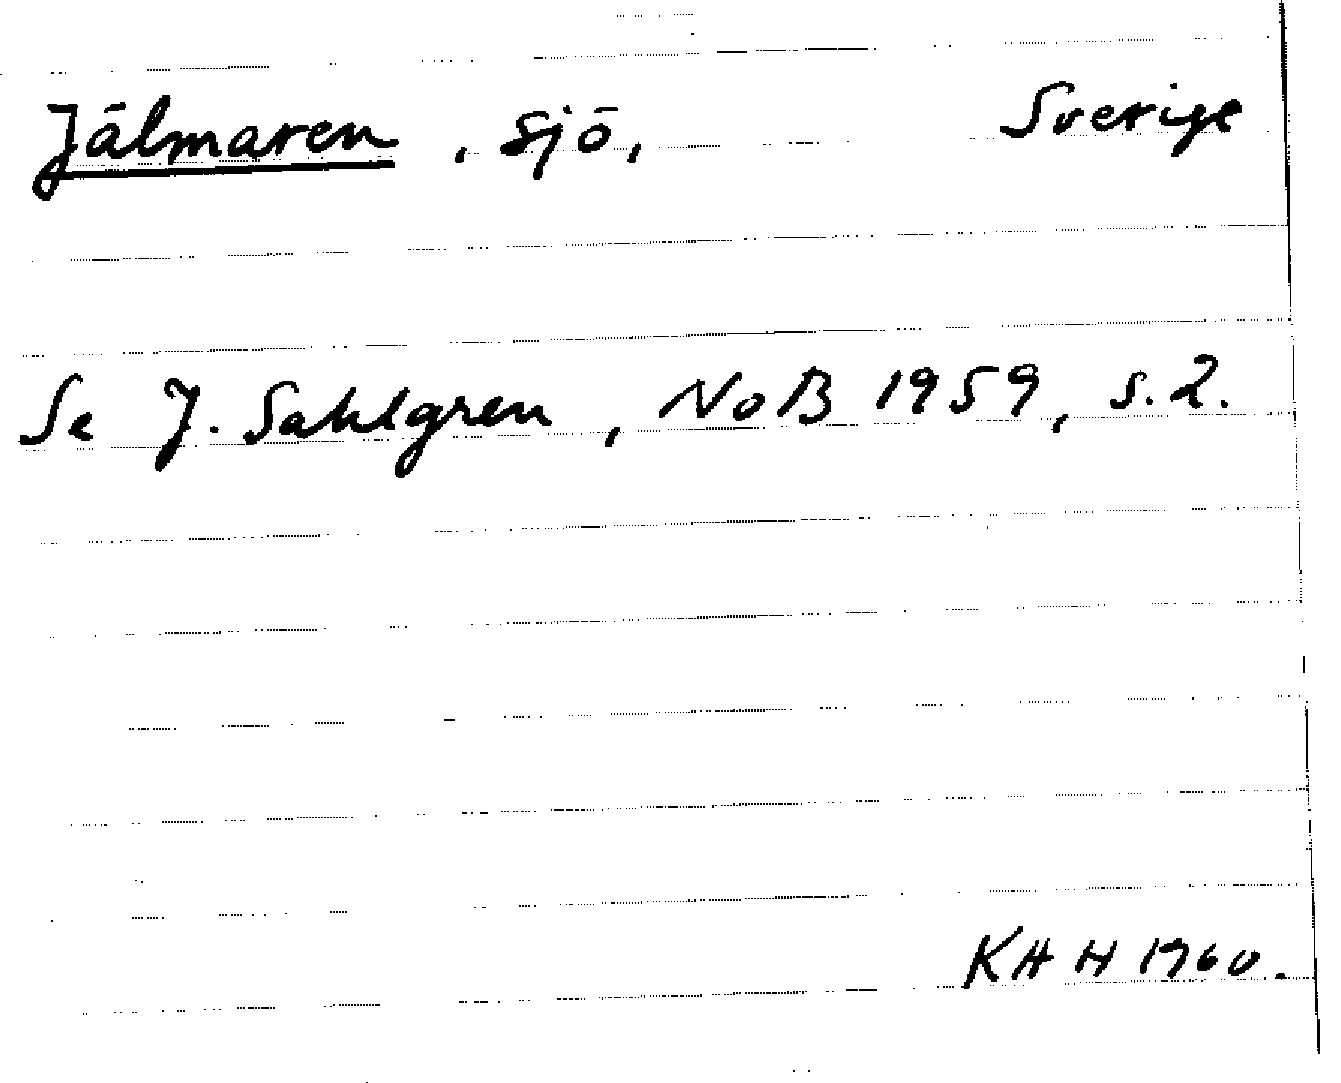 Jälmaren, sjö, Sverige
Se J. Sahlgren, NoB 1959, s. 2.
KHH 1960.